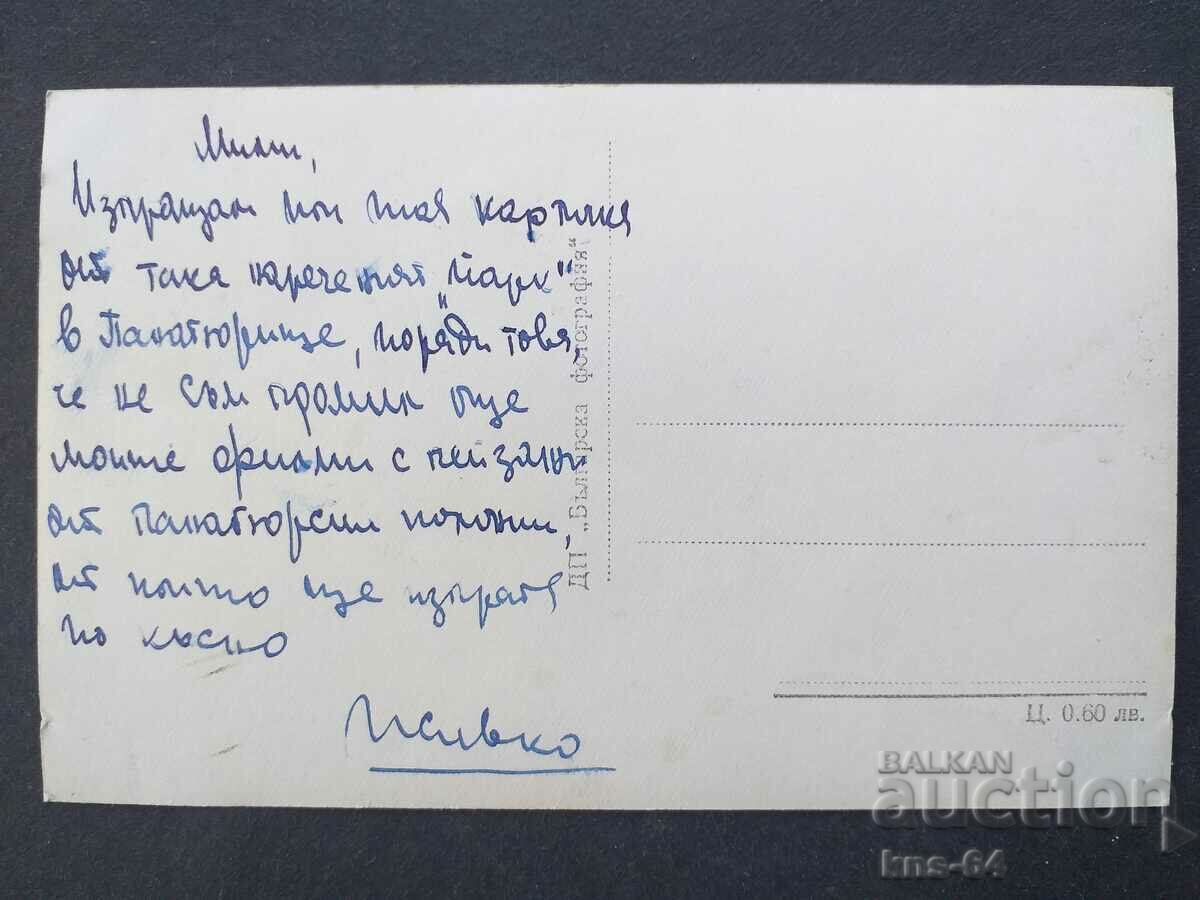 Мили,
Изпращам ти тая картичка
от така нареченият „Парк“
в Панагюрище, поради това,
че не съм промил още
моите филми с пейзажи
от Панагюрски
от които ще изпратя
по късно
ДП „Българска фотография“
Ц. 0.60 лв.
BALKAN
auction
kns-64